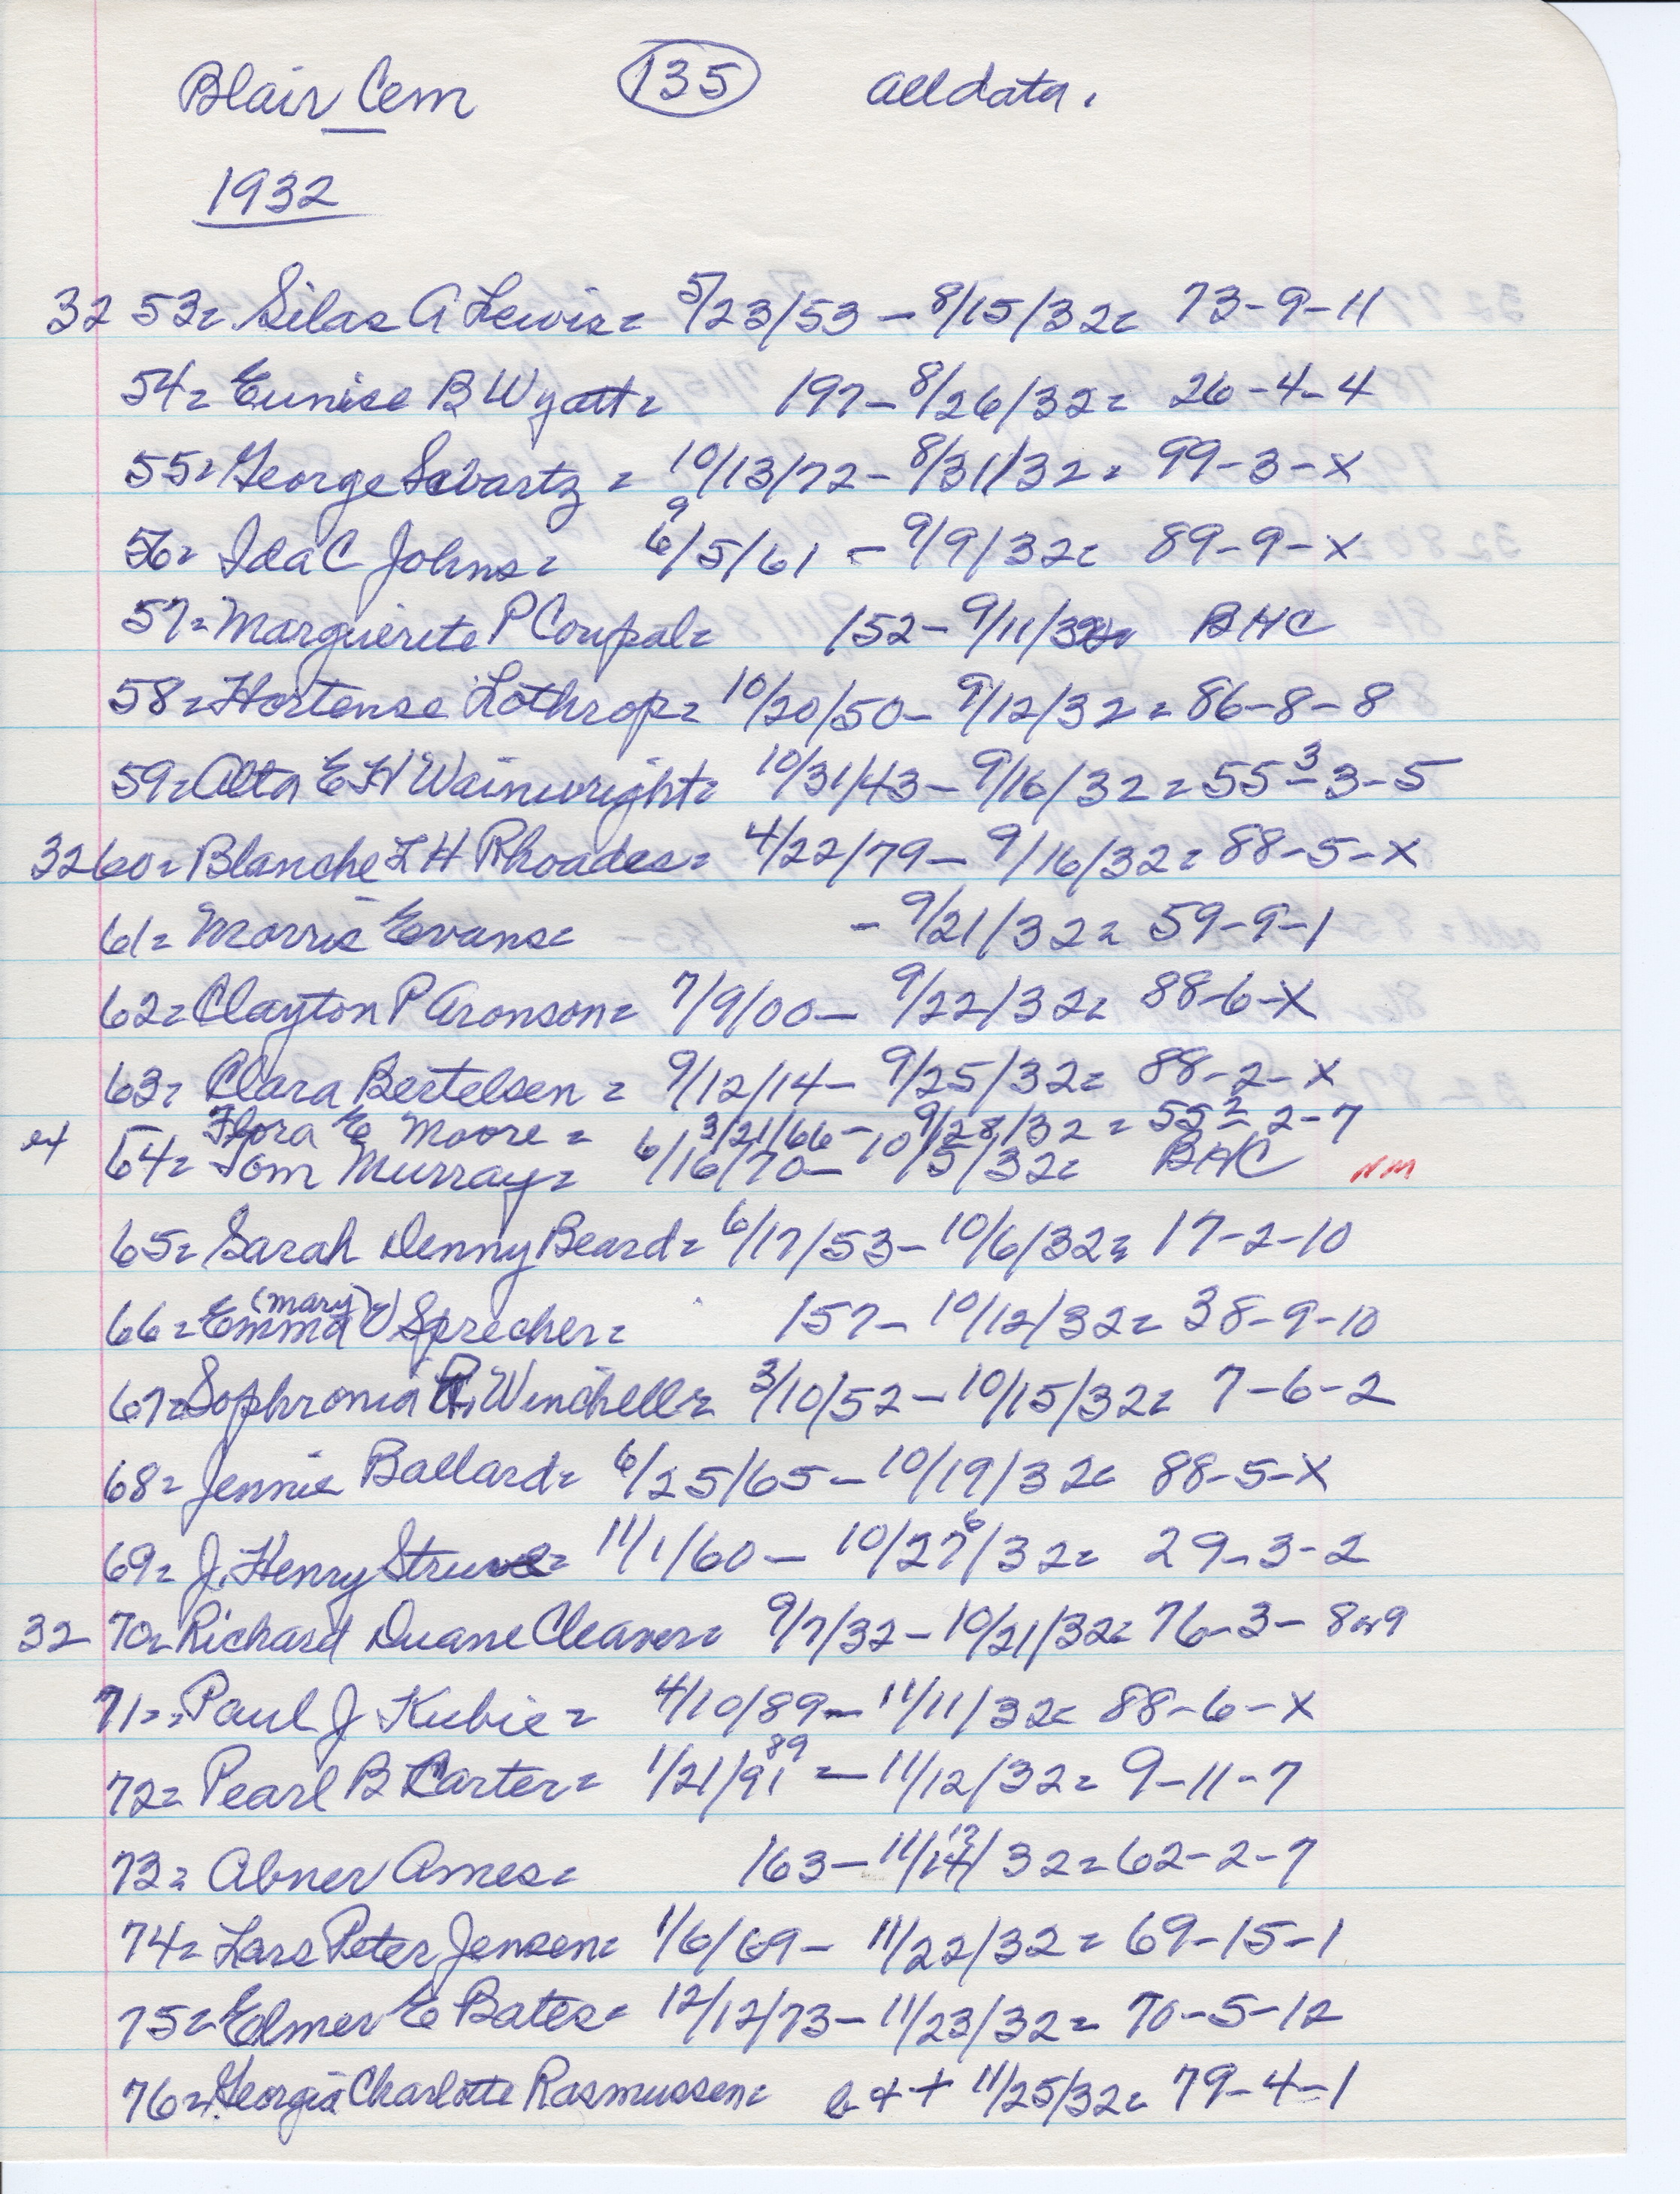 Blair Cem 135 all data.
1932
32 53= Silas A Lewis= 5/23/53 - 8/15/32= 73-9-11
54= Eunice B Wyatt= 197- 8/26/32= 26-4-4
55= George Schvartz = 10/13/72- 8/31/32= 99-3-X
9
56= Ida C Johns= 6/5/61 - 9/9/32= 89-9-X
57= Marguerete P Coupal= 152- 9/11/32= BHC
58= Hortense Lothrop= 10/20/50- 9/12/32= 86-8-8
59= Alta E H Wainwright= 10/31/43- 9/16/32= 55 3-3-5
3260= Blanche L H Rhoades= 4/22/79- 9/16/32= 88-5-X
61= Morris Evans= - 9/21/32= 59-9-1
62= Clayton P Aronson= 7/9/00- 9/22/32= 88-6-X
63= Clara Bertelsen= 9/12/14- 9/25/32= 88-2-X
Flora E Moore = 3/21/66- 9/28/32= 55 2-2-7
64= Tom Murray= 6/16/70- 10/5/32= BHC NM
65= Sarah Denny Beard= 6/17/53- 10/6/32= 17-2-10
(Mary)
66= Emma E Sprecher= 157- 10/12/32= 38-9-10
67= Sophronia R. Winchell= 3/10/52- 10/15/32= 7-6-2
68= Jennie Ballard= 6/25/65- 10/19/32= 88-5-X
6
69= J. Henry Struve= 11/1/60- 10/27/32= 29-3-2
32 70= Richard Duane Cleaver= 9/7/32- 10/21/32= 76-3- 8or9
71= Paul J Kubie= 4/10/89- 11/11/32= 88-6-X
89
72= Pearl B Carter= 1/21/91 - 11/12/32= 9-11-7
13
73= Abner Ames= 163- 11/14/32= 62-2-7
74= Lars Peter Jensen= 1/6/69- 11/22/32= 69-15-1
75= Elmer E Bates= 12/12/73- 11/23/32= 70-5-12
76= Georgia Charlotte Rasmussen= b + + 11/25/32= 79-4-1